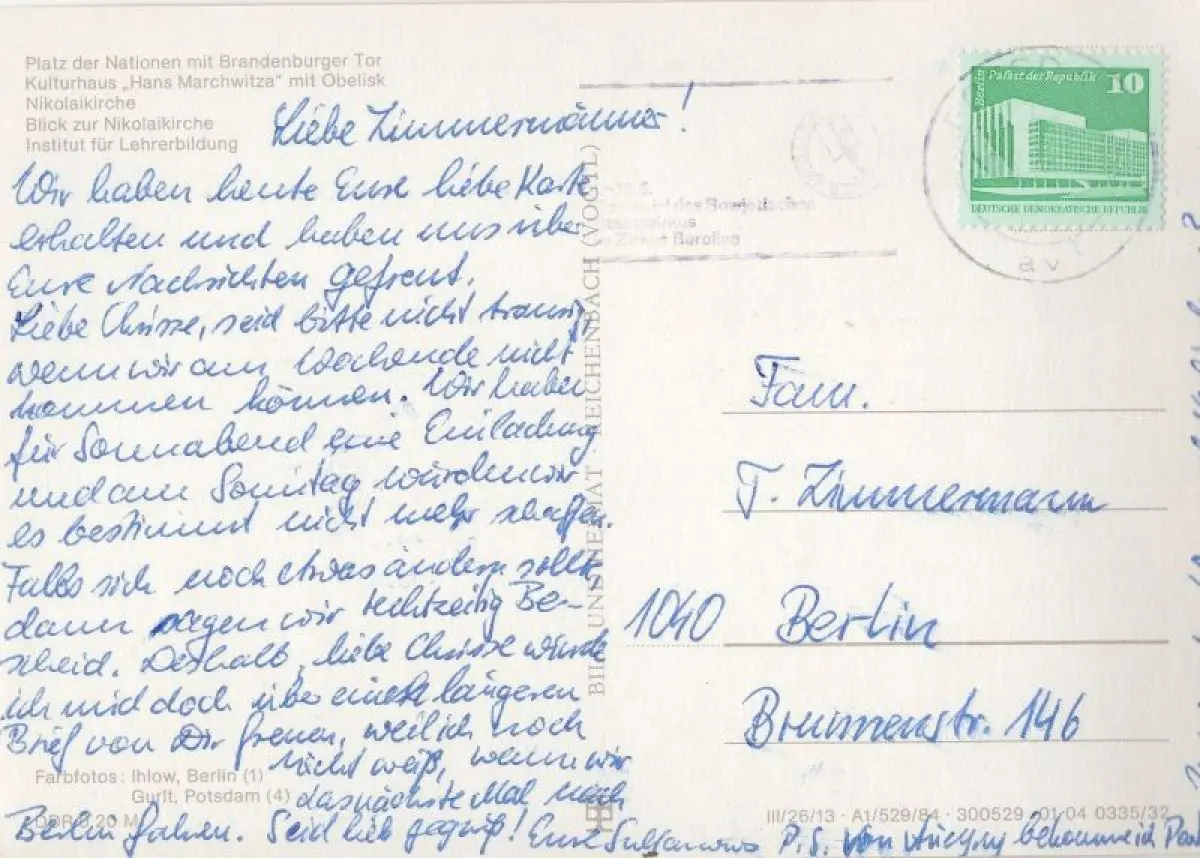 Platz der Nationen mit Brandenburger Tor
Kulturhaus „Hans Marchwitza" mit Obelisk
Nikolaikirche
Blick zur Nikolaikirche
Institut für Lehrerbildung
Liebe Zimmermänner!
Wir haben heute Eure liebe Karte
erhalten und haben uns über
Eure Nachrichten gefreut.
Liebe Chrisse, seid bitte nicht traurig,
wenn wir am Wochende nicht
kommen können. Wir haben
für Sonnabend eine Einladung
und am Sonntag würden wir
es bestimmt nicht mehr schaffen.
Falls sich noch etwas ändern sollte
dann sagen wir rechtzeitig Be-
scheid. Deshalb, liebe Chrisse würde
ich mich doch über einen längeren
Brief von Dir freuen, weil ich noch
nicht weiß, wann wir
das nächste Mal nach
Berlin fahren. Seid lieb gegrüßt! Eure
P.S. von bekomme ich
Farbfotos: Ihlow, Berlin (1)
Gurlt, Potsdam (4)
DDR 0,20 M
BILD UND HEIMAT · REICHENBACH (VOGTL)
des Sowjetischen
Zirkus Berolina
Berlin Palast der Republik 10
DEUTSCHE DEMOKRATISCHE REPUBLIK
Fam.
T. Zimmermann
1040 Berlin
Brunnenstr. 146
III/26/13 · A1/529/84 · 300529 01 04 0335/32